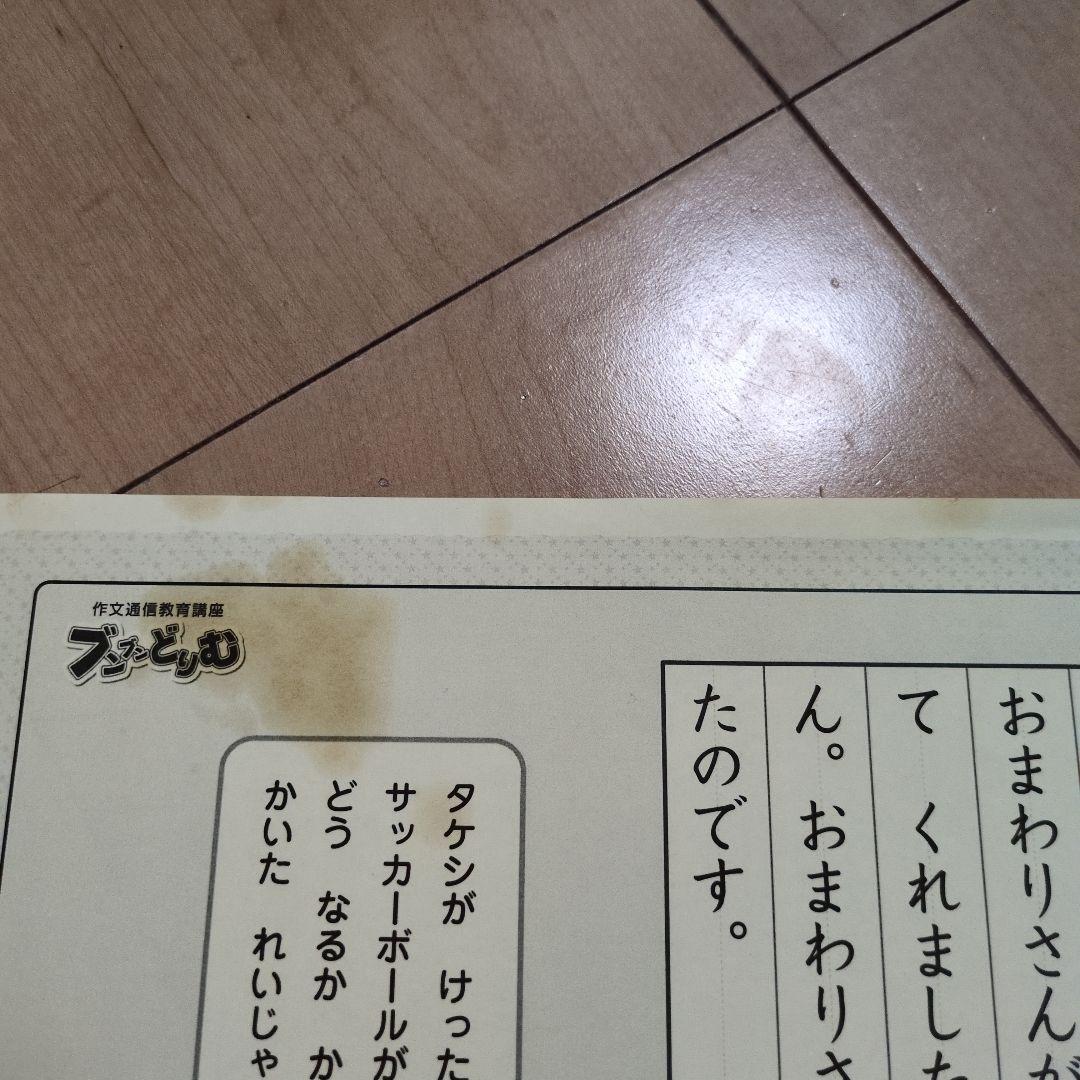 作文通信教育講座
ブンブンどりむ
おまわりさんが
て くれました
ん。おまわりさ
たのです。
タケシが けった
サッカーボールが
どう なるか か
かいた れいじゃ